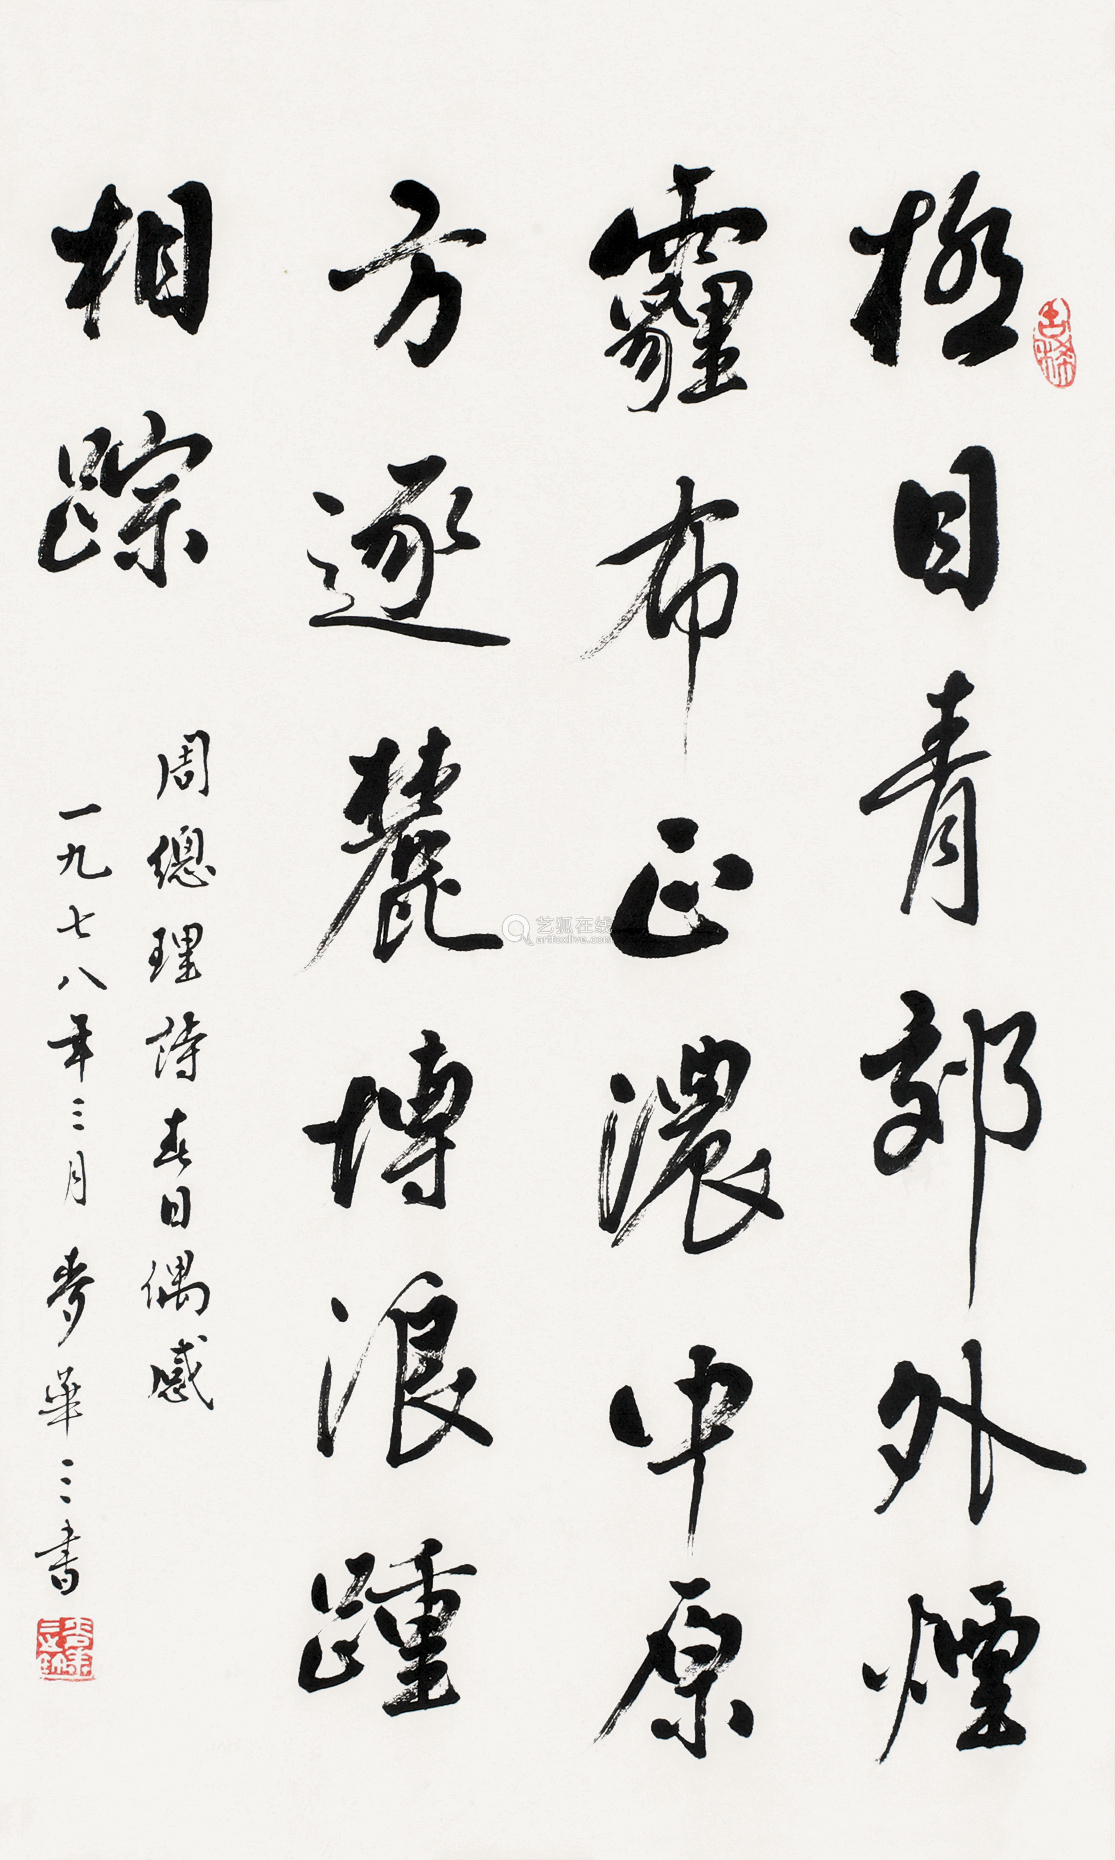 极目青郊外煙
霾布正濃中原
方逐麓博浪踵
相踪
周總理詩春日偶感
一九七八年三月麥華三書
艺狐在线
artfoxlive.com